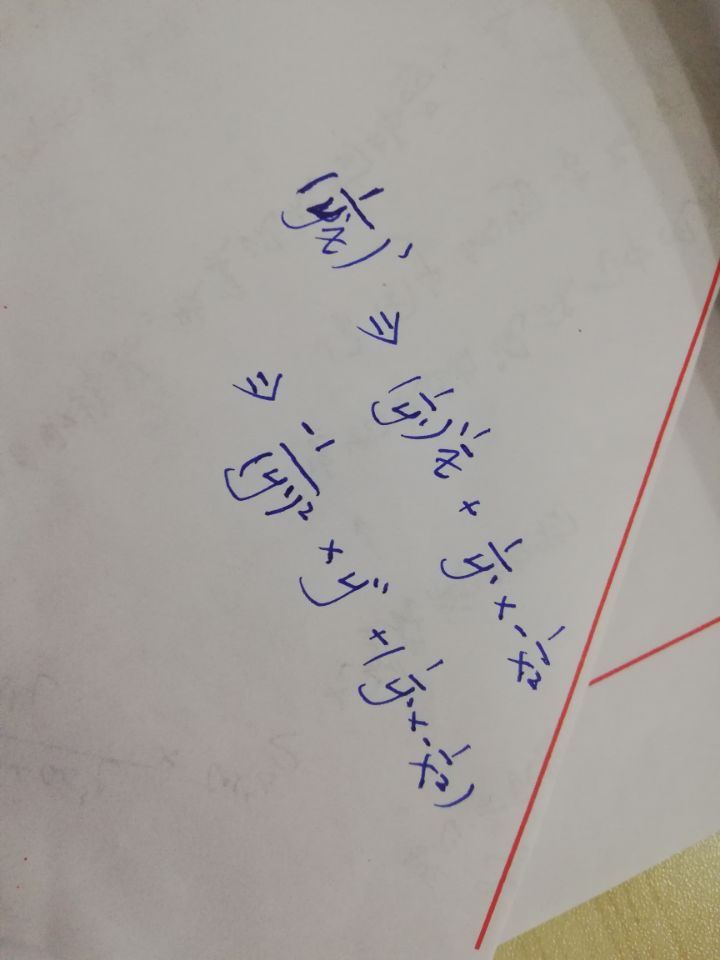 (1/y'z)' ⇒ (1/y')' 1/z + 1/y' × -1/x²
⇒ -1/(y')² × y'' + (1/y' × -1/x²)